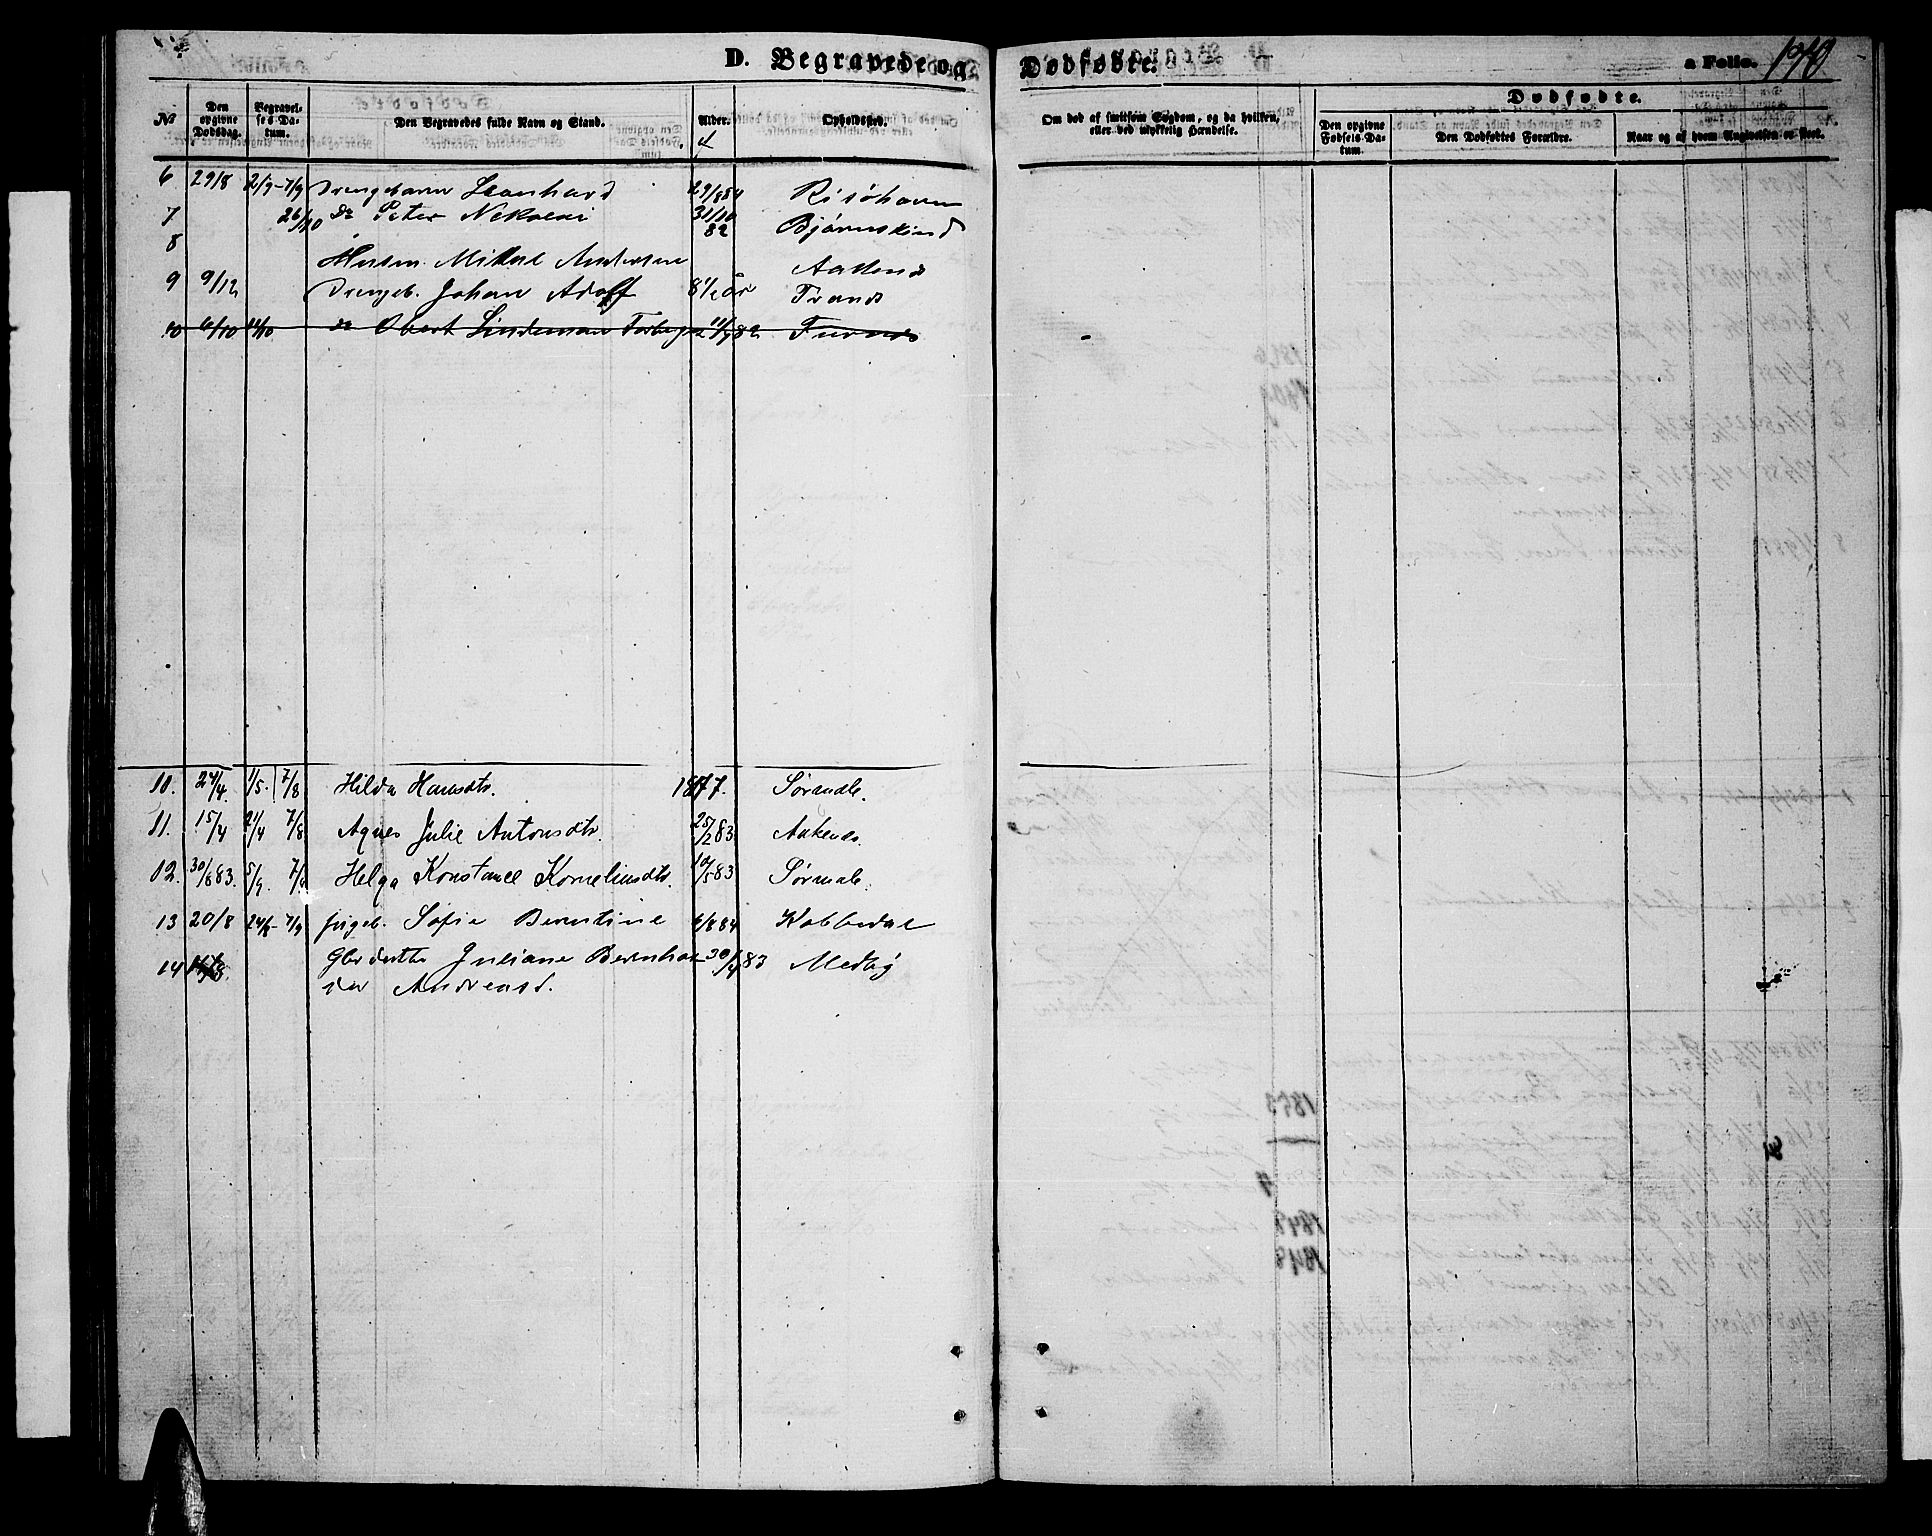 D. Begravede og Dødfødte. a Folio. 190
Dødfødte.
No
Den opgivne Dødsdag.
Begravelses-Datum.
Den Begravedes fulde Navn og Stand.
Alder.
Opholdssted.
Om død af smitsom Sygdom, og da hvilken, eller ved ulykkelig Hændelse.
Den opgivne Fødsels-Datum.
Den Dødfødtes Forældre.
Naar og af hvem Angivelsen er skeet.
6 29/8 2/9-7/9 Drengebarn Leonhard 29/8 84 Risøhavn
7 26/10 do Peter Nekolai 31/10 82 Bjørnskind
8 Husm. Mikal Andersen Aakenes
9 9/12 Drengeb. Johan Adolf 8 1/2 år Tranes
10 6/10 11/10 do Obert Lindeman 11/9 82
10. 27/4. 1/5. 7/8 Hilda Hansdtr. 1877. Sørmele.
11. 15/4 21/4 7/8 Agnes Julie Antonsdtr. 25/2 83 Aakenes.
12. 30/8 83. 5/9. 7/9 Helga Konstance Korneliusdtr. 10/5 83 Sørmele.
13 20/8 24/8-7/9 Pigeb. Sofie Berntine 6/8 84 Kobbedal
14 Juliane Bernhar- 30/4 83 Medby
dine Andreasd.